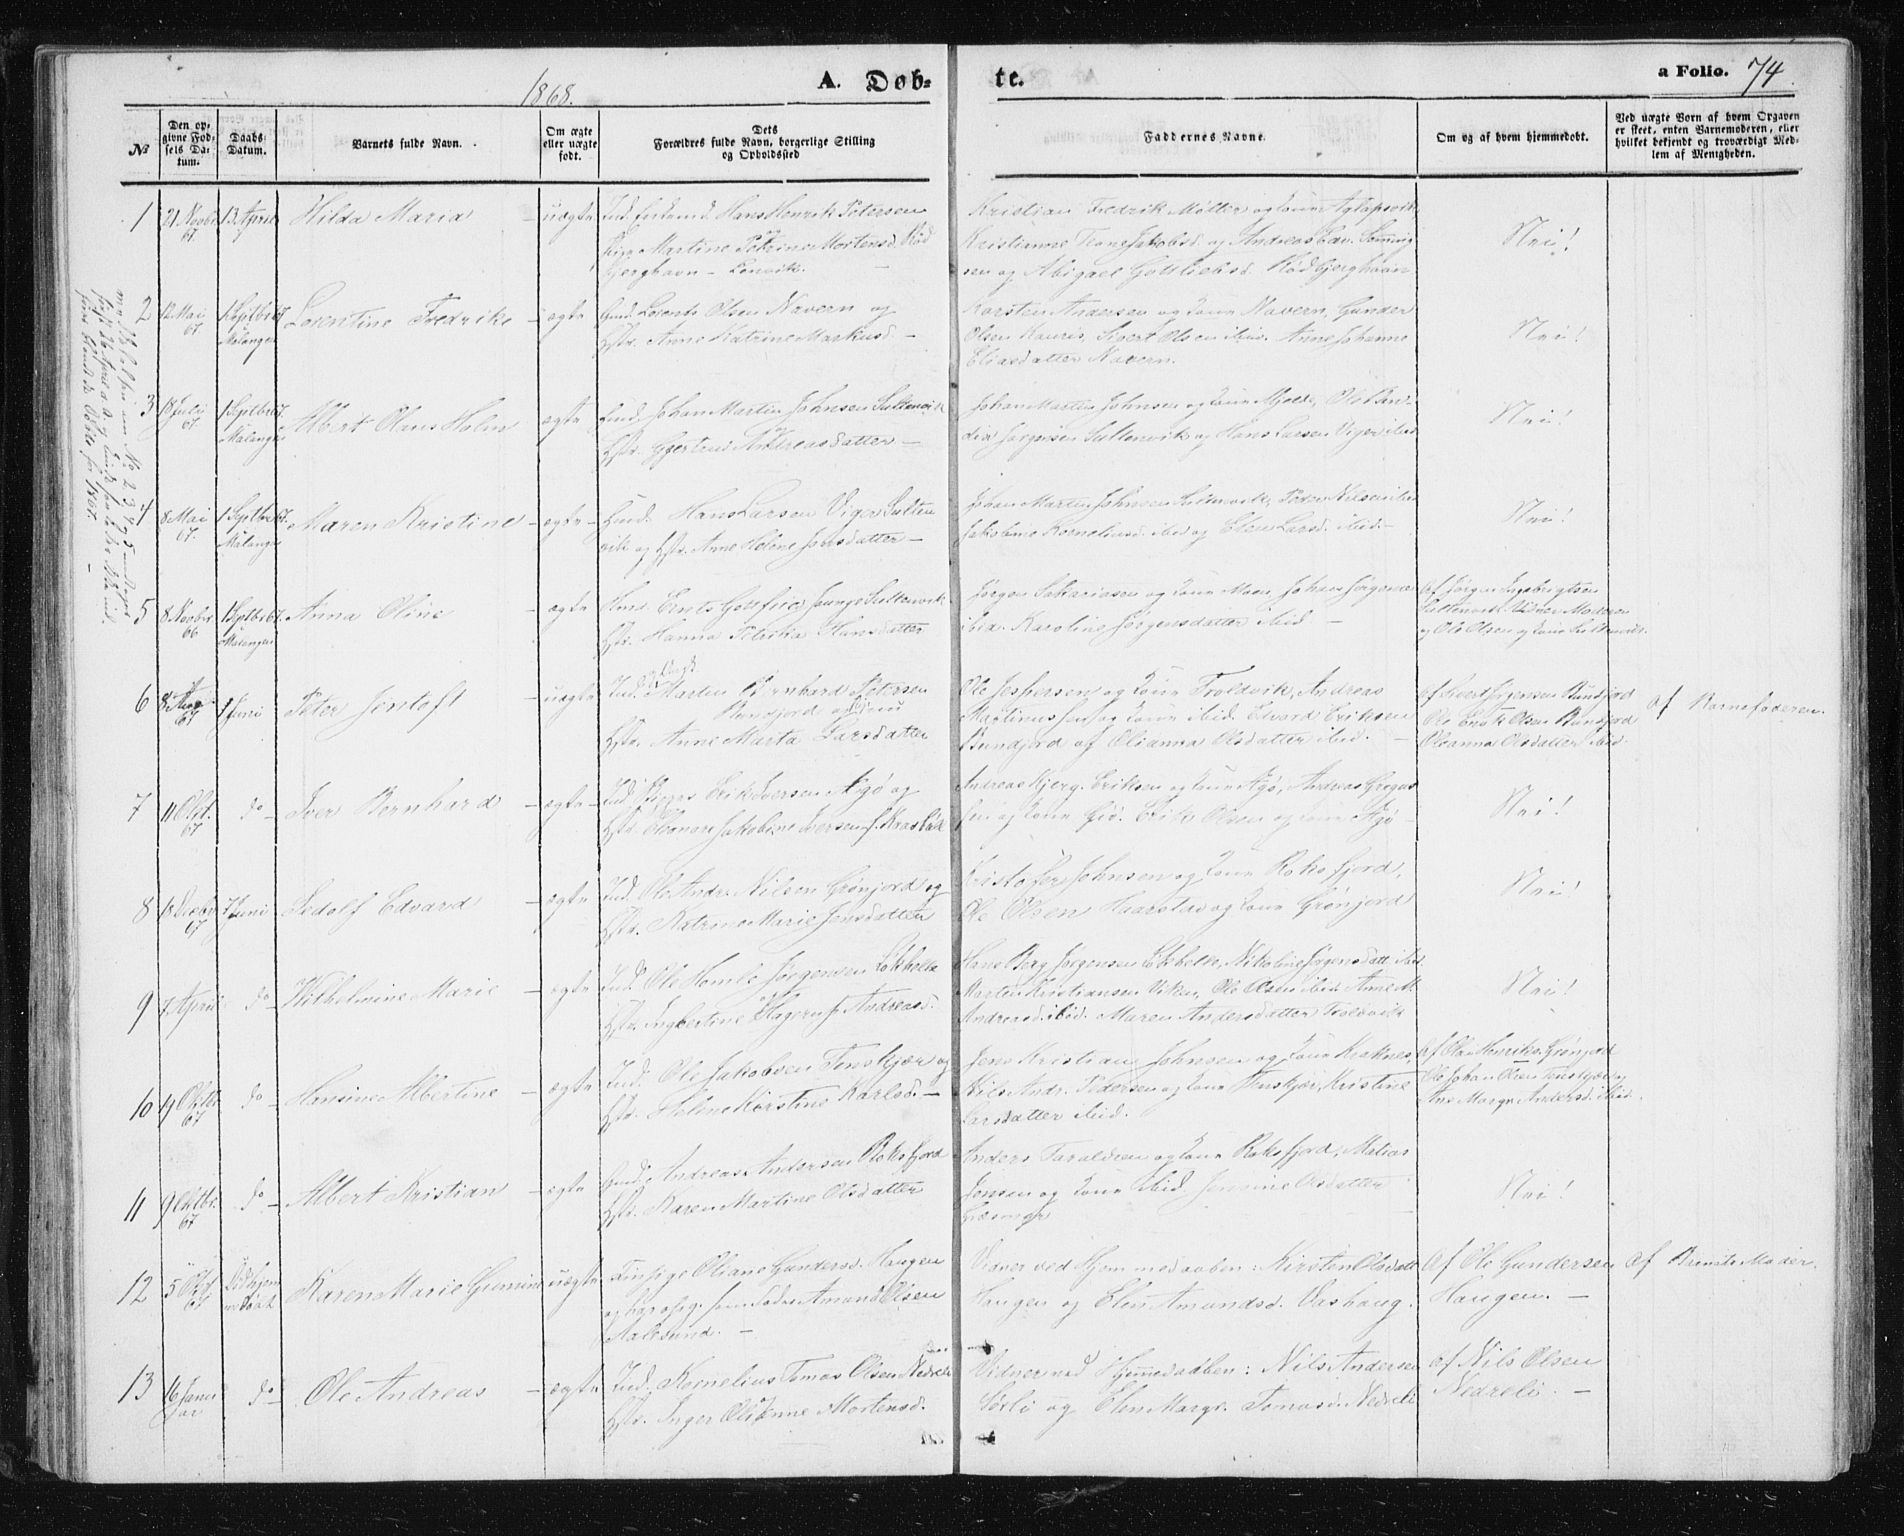 1868.
A. Døb-
te.
a Folio. 74
№
Den op-
givne Fød-
sels Da-
tum.
Daabs-
Datum.
Barnets fulde Navn.
Om ægte
eller uægte
født.
Dets
Forældres fulde Navn, borgerlige Stilling
og Opholdssted
Faddernes Navne.
Om og af hvem hjemmedøbt.
Ved uægte Børn af hvem Opgaven
er skeet, enten Barnemoderen, eller
hvilket bekjendt og troværdigt Med-
lem af Menigheden.
1
21 Novbr
67
13 April
Hilda Maria
uægte
Hans Henrik Petersen
Pige Martine Petrine Mortensd. Rød
bjerghavn - Lenvik.
Kristian Fredrik Møller og Kone Aglapsvik
Kristianne Trane Jakobsd. og Andreas Lav. Hemming
sen og Abigael Gottliebsd. Rødbjerghavn
Nei!
2
12 Mai
67
1 Septbr 67.
Malangen
Lorentine Fredrike
ægte
Gmd. Lorents Olsen Navern og
Hstr. Anne Katrine Markusd. -
Karsten Andersen og Kone Navern, Gunder
Olsen Kauris, Sivert Olsen ibid. Anne Johanne
Eliasdatter Navern.
Nei!
3
18 Juli
67
1 Septbr 67.
Malangen
Albert Olaus Holm
ægte
Gmd. Johan Martin Johnsen Sultenvik
Hstr. Gjertrud Andreasdatter -
Johan Martin Johnsen og Kone Mjelde, Ole Ben-
dix Jørgensen Sultenvik og Hans Larsen Viger ibid
Nei!
4
8 Mai
67.
1 Septbr 67.
Malangen
Maren Kristine
- ægte -
Gmd. Hans Larsen Viger Sulten
vik og Hstr. Anne Helene Jensdatter -
Johan Martin Johnsen Sultenvik, Peder Nilsen ibid
Jakobine Korneliusd. ibid og Elen Larsd. ibid. -
Nei!
5
8 Novbr
66
1 Septbr 67.
Malangen
Anna Oline
- ægte
Gmd. Ernts Gotfrid Junge Sultenvik
Hstr. Hanna Petrika Hansdatter
Jørgen Sakariasen og Kone Moen, Johan Jørgensen
ibid. Karoline Jørgensdatter ibid -
af Jørgen Ingebrigtsen
Sultenvik. Vidner Moderen
og Ole Olsen og Kone Sultenvik.
6
8 Aug
67
7 Juni
Peter Jentoft
- uægte
Ind. Morten Bernhard Petersen
Bundjord og
Hstr. Anne Marta Larsdatter
Ole Jespersen og Kone Troldvik, Andreas
Martinussen og Kone ibid. Edvard Eriksen
Bundjord og Olianna Olsdatter ibid. -
af Sivert Jørgensen Bundjord
Ole Enok Olsen Bundjord
Oleanna Olsdatter ibid.
af Barnefaderen.
7
11 Okt.
67
do -
Iver Bernhard
- ægte -
Ind. Erik Iversen Ajø og
Hstr. Elenore Jakobine Iversen f. Kraabøl
Andreas Hjerg. Eriksen og Kone Ajø, Andreas Gregus
sen og Kone Gib. Erik Olsen og Kone Ajø -
Nei!
8
18 Decbr
67
7 Juni
Sedolf Edvard
- ægte
Ind. Ole Andr. Nilsen Grønjord og
Hstr. Katrine Marie Jensdatter
Kristofer Johnsen og Kone Roksfjord,
Ole Olsen Haarstad og Kone Grønjord
Nei!
9
7 April
do -
Wilhelmine Marie
- ægte
Ind. Ole Homle Jørgensen Løkholle
Hstr. Ingbertine Hagern f. Andreasd.
Hans Berg Jørgensen Løkholle, Nikoline Jørgensdatt. ibid
Morten Kristiansen Viken, Ole Olsen ibid. Anne M.
Andreasd. ibid. Maren Andersdatter Troldvik
Nei!
10
19 Oktbr
67
do -
Hansine Albertine
ægte
Ind. Ole Jakobsen Tenskjær og
Hstr. Helene Kirstine Karlsd. -
Jens Kristian Johnsen og Kone Kraknes,
Nils Andr. Pedersen og Kone Tenskjær, Kristine
Larsdatter ibid.
Af Ole Henriks. Grønjord
Ole Johan Olsen Tenskjær og
Ane Margr. Andersd. ibid.
11
9 Oktbr.
67
do -
Albert Kristian
- ægte
Gmd. Andreas Andersen Roksfjord
Hstr. Karen Martine Olsdatter
Anders Taraldsen og Kone Roksfjord, Matias
Jensen og Kone ibid. Jensine Olsdatter
Nei!
12
5 Okt
67
Karen Marie Gunnine
uægte
Oliane Gundersd. Haugen
Amund Olsen
Aalesund. -
Vidner ved Hjemmedaaben: Kirsten Olsdatt
Haugen og Elen Amundsd. Vashaug.
Af Ole Gundersen
Haugen. -
af Barnets Moder.
13
16 Janu
ar
do -
Ole Andreas
- ægte
Ind. Kornelius Tomas Olsen Nedreli
Hstr. Inger Olianne Mortensd.
Vidner ved Hjemmedaaben: Nils Andersen
Sørli og Elen Margr. Tomasd. Nedreli
af Nils Olsen
Nedreli. -